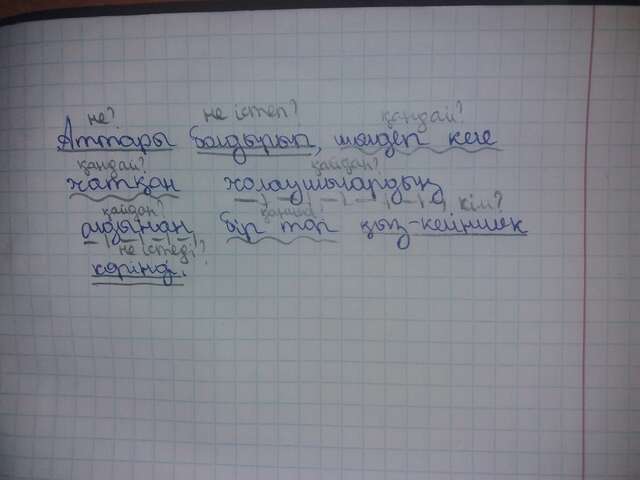 не? не істеп? қандай?
Аттары болдырып, шөлдеп келе
қандай? қайдан?
жатқан жолаушылардың
қайдан? қанша? кім?
алдынан, бір топ қыз-келіншек
не істеді?
көрінді.